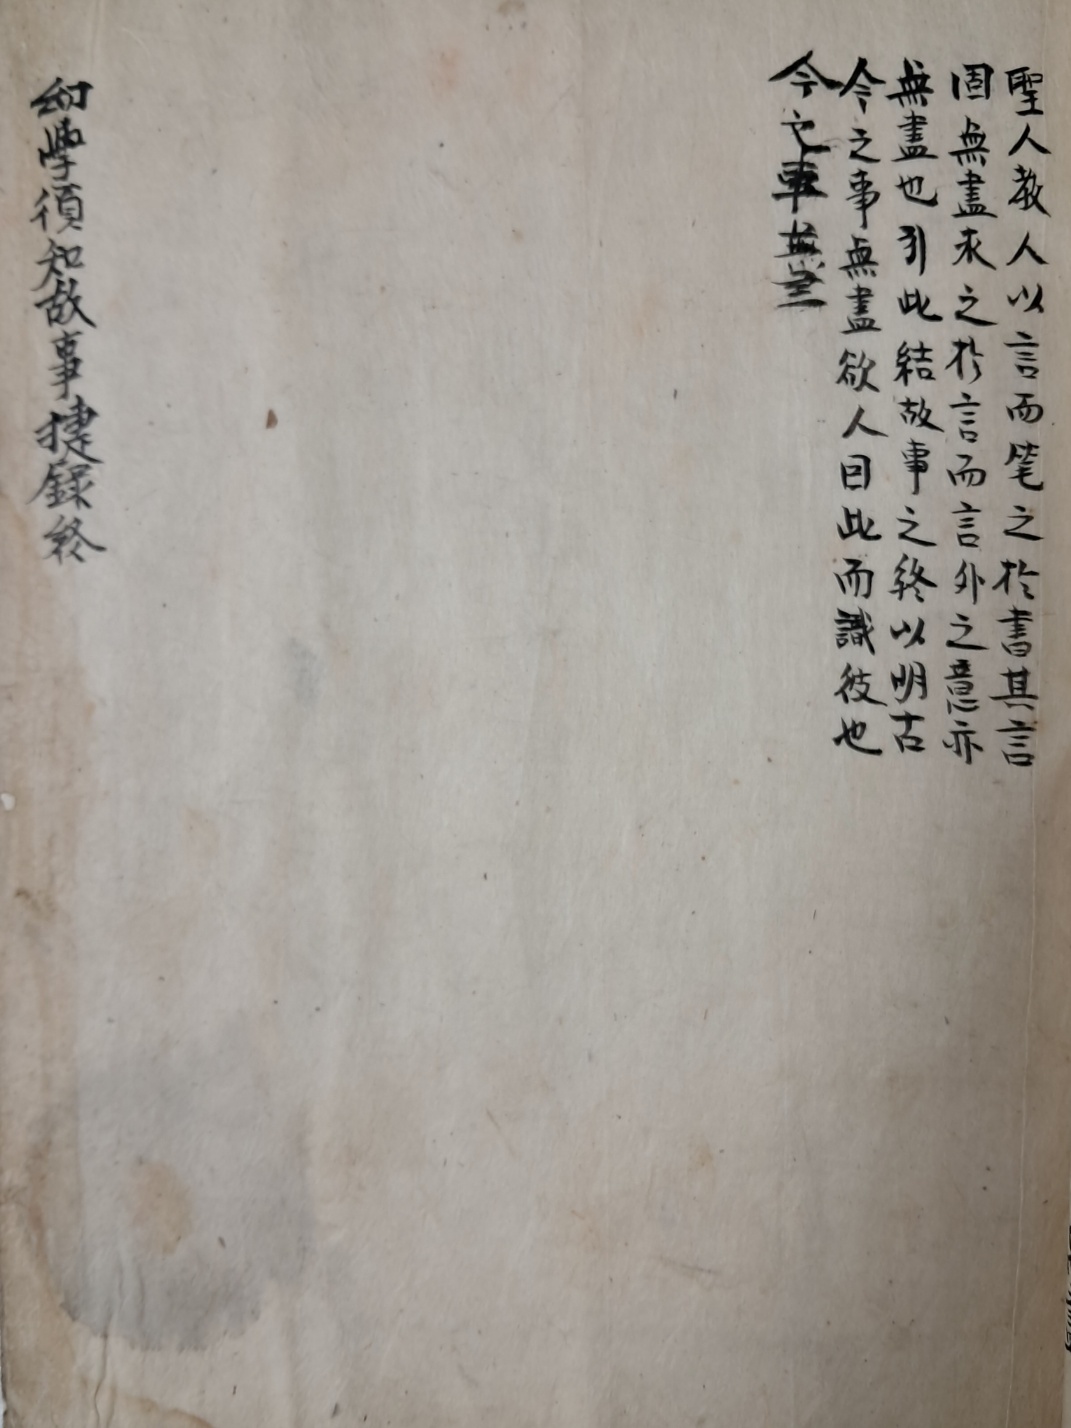 聖人教人以言而笔之於書其言
固無盡求之於言而言外之意亦
無盡也引此結故事之終以明古
今之事無盡欲人因此而識彼也
今之事無盡
幼學須知故事捷錄終